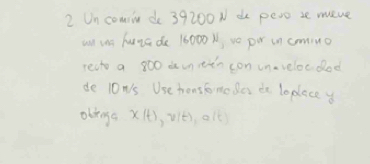 2 Un comión de 39200 N de peso se mueve
con una fuerza de 16000 N, va por un camino
recto a 800 de un retén con una velocidad
de 10 m/s Use transformadas de laplace y
obtenga x(t), v(t), a(t)